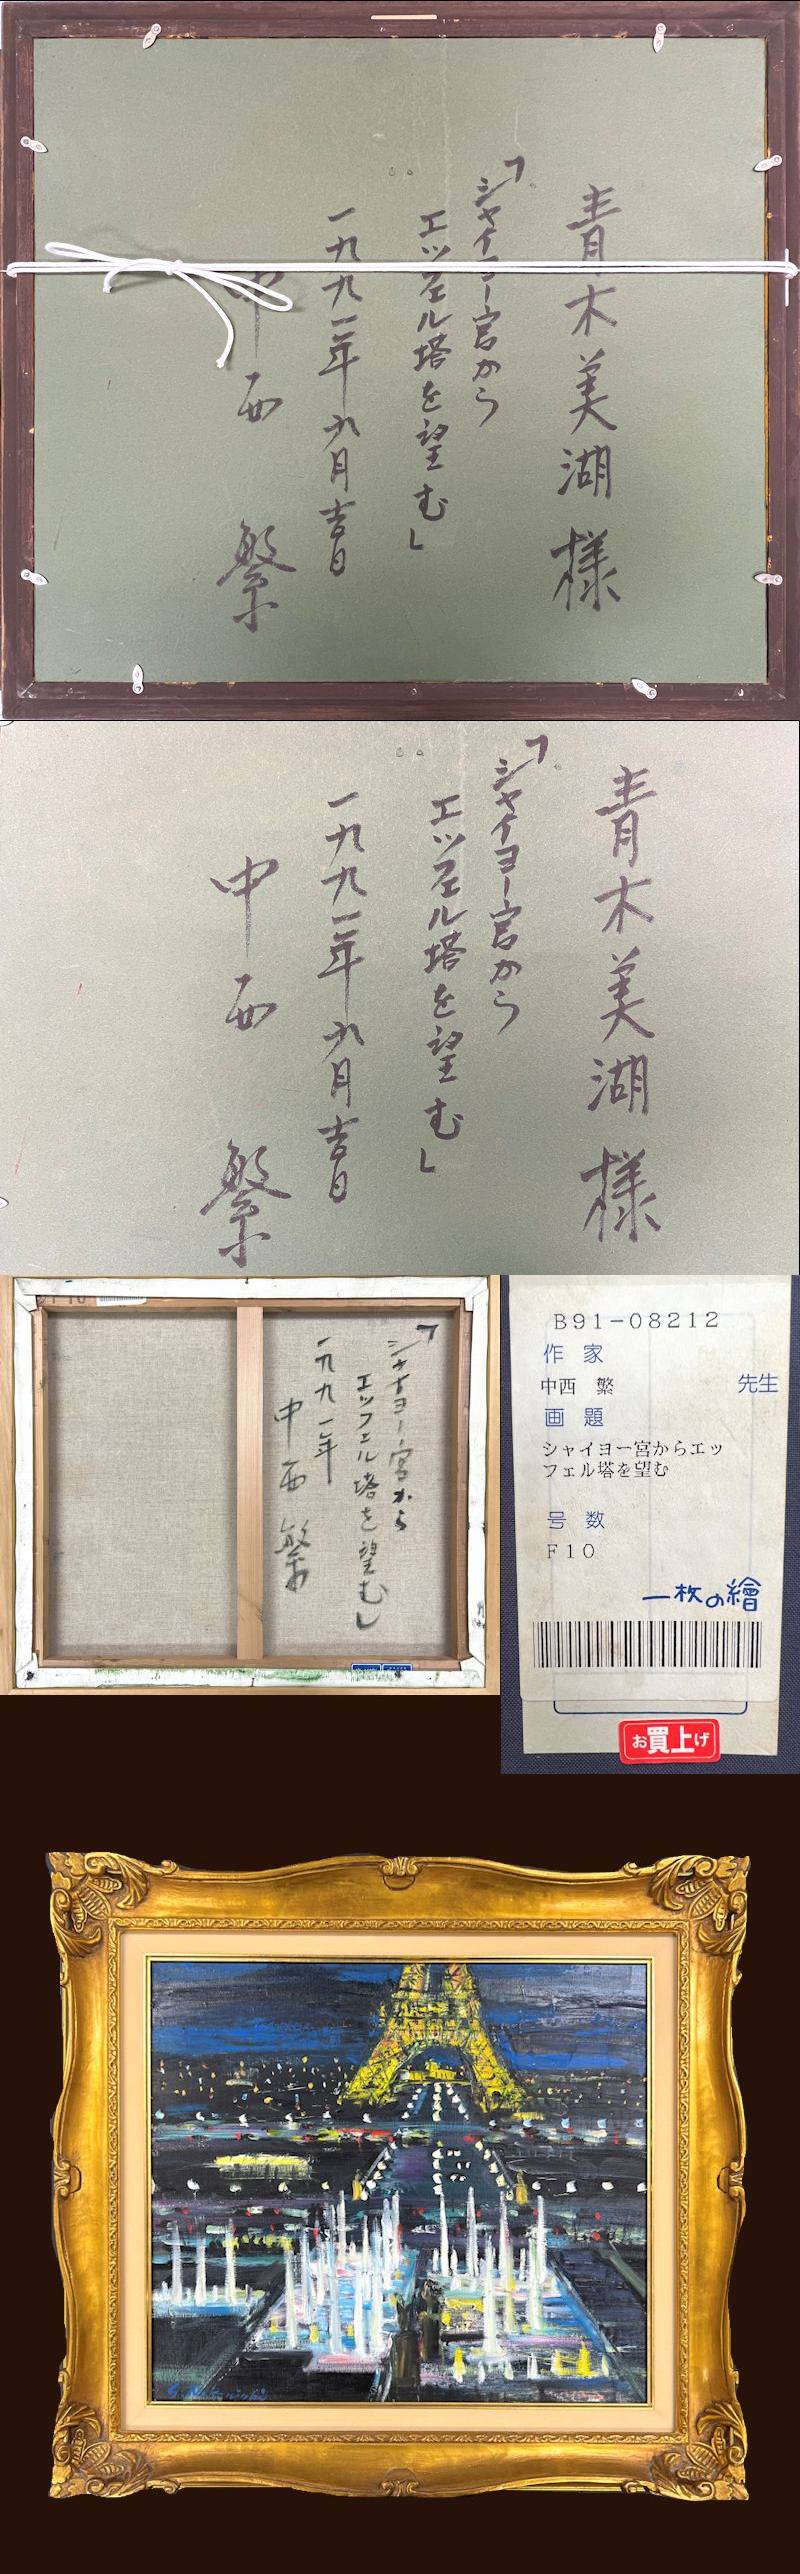 青木美湖様
「シャイヨー宮から
エッフェル塔を望む」
一九九一年九月吉日
中西 繁
青木美湖様
「シャイヨー宮から
エッフェル塔を望む」
一九九一年九月吉日
中西 繁
「シャイヨー宮から
エッフェル塔を望む」
一九九一年
中西 繁
B91-08212
作家
中西 繁 先生
画題
シャイヨー宮からエッ
フェル塔を望む
号数
F10
一枚の繪
お買上げ